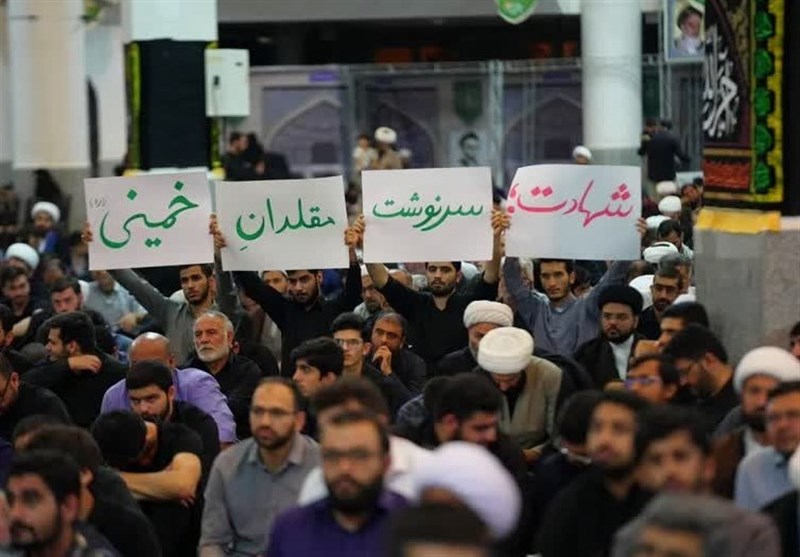 شهادت؛
سرنوشت
مقلدانِ
خمینی (ره)